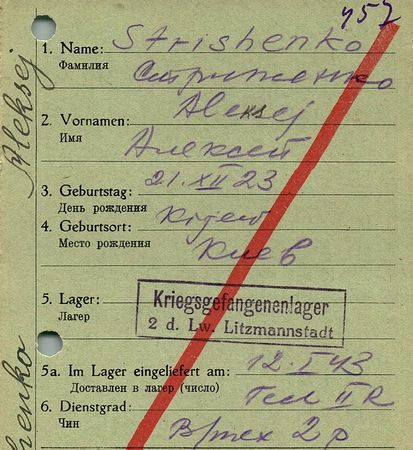 457
1. Name: Strishenko
Фамилия Стриженко
2. Vornamen: Aleksej
Имя Алексей
3. Geburtstag: 21. XII 23
День рождения
4. Geburtsort: Kijew
Место рождения Киев
5. Lager: Kriegsgefangenenlager
Лагерь 2 d. Lw. Litzmannstadt
5a. Im Lager eingeliefert am: 12. I 43
Доставлен в лагерь (число)
6. Dienstgrad: Tech II R
Чин В/тех 2 р
Aleksej
henko